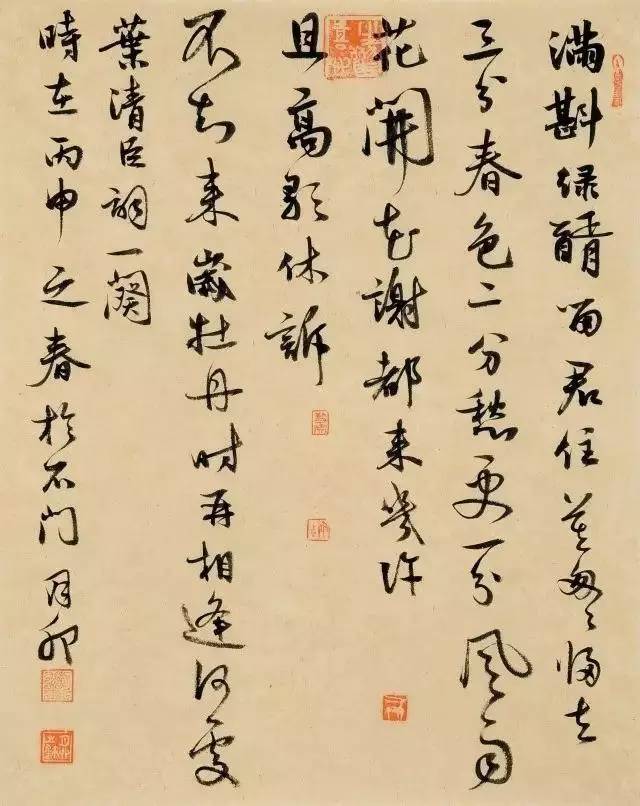 滿斟綠醑留君住莫匆匆歸去
三分春色二分愁更一分風雨
花開花謝都来幾許
且高歌休訴
不知来歲牡丹時再相逢何處
葉清臣詞一闋
時在丙申之春於石门